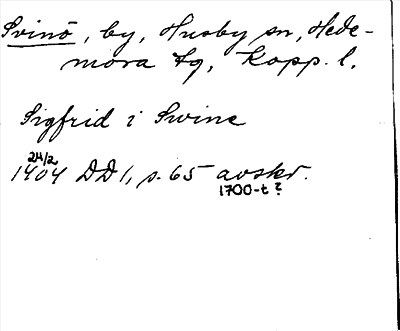 Svinö, by, Husby sn, Hede-
mora tg, Kopp. l.
Sigfrid i Swine
24/2
1404 DD 1, s. 65 avskr.
1700-t?